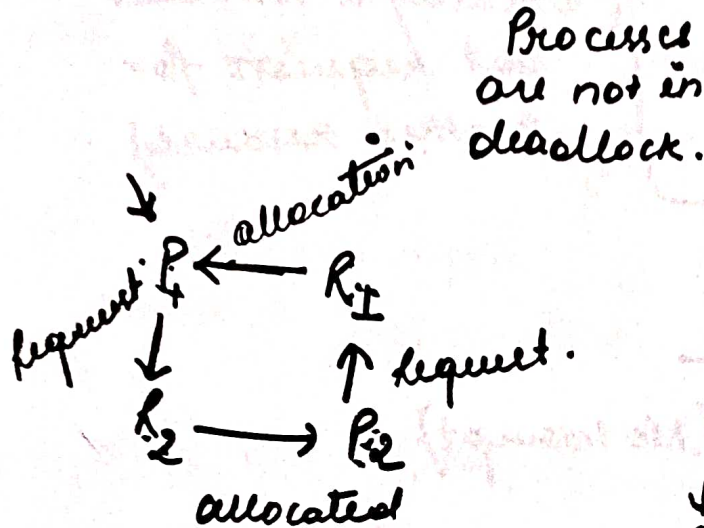 Processes
are not in
deadlock.
allocation
P1
R1
request
request.
R2
P2
allocated